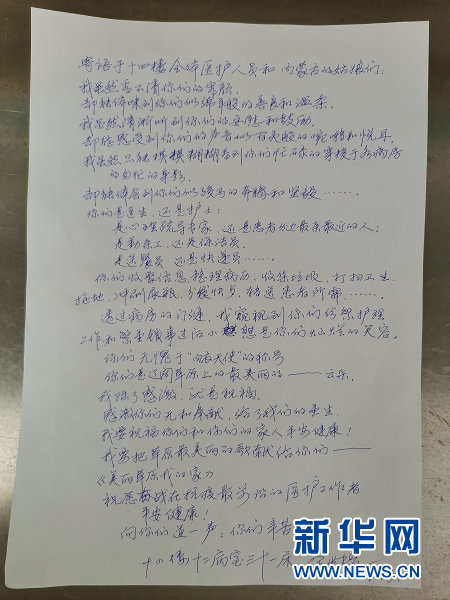 寄语于十四楼全体医护人员和内蒙古的姑娘们:
我虽然看不清你们的容颜,
却能体味到你们似绵羊般的善良和温柔。
我虽然清晰听到你们的安慰和鼓励,
却能感受到你们的声音似百灵般的嘹亮和悦耳。
我虽然只能模模糊糊看到你们忙碌的穿梭于各病房
的白色的身影,
却能体会到你们似骏马的奔腾和坚毅……。
你们是医生,还是护士;
是心理疏导专家,还是患者以为最亲最近的人;
是勤杂工,还是保洁员,
是送餐员 还是快递员……。
你们收聚信息整理病历,收除垃圾,打扫卫生,
拖地,冲刷尿瓶,分餐供水,转送患者所需……。
透过病房的门缝,我窥视到你们的紧张护理
工作和繁重锁事过后 想是你们灿烂的笑容。
你们无愧于“白衣天使”的称号
你们是辽阔草原上的最美丽的——云朵。
我除了感激,就是祝福。
感激你们无私奉献,给了我们的重生。
我要祝福你们和你们的家人平安健康!
我要把草原最美丽的歌献给你们——
《美丽草原我的家》
祝愿奋战在抗疫最前沿的医护工作者
平安健康!
向你们道一声:你们辛苦
十四楼十二病室三十一床
新华网
WWW.NEWS.CN